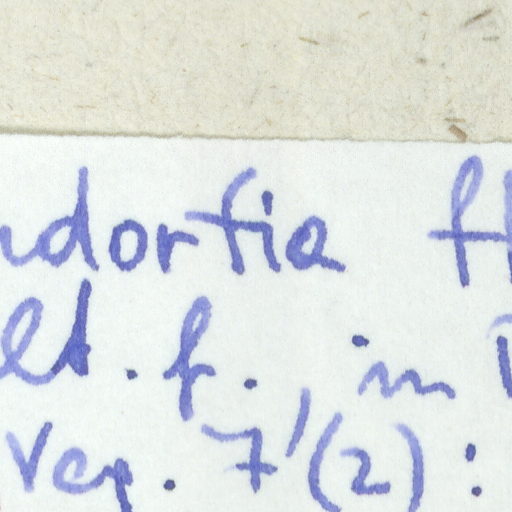 ndorfia fl
elt. f. in
Veg. 7'(2):